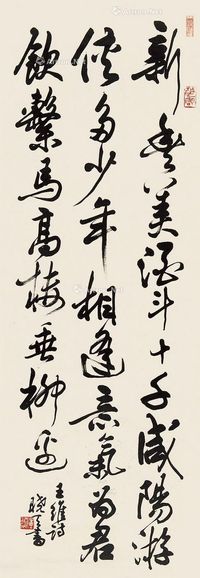 新豐美酒斗十千咸陽游
俠多少年相逢意氣为君
飲繫馬高楼垂柳边
王維詩
書